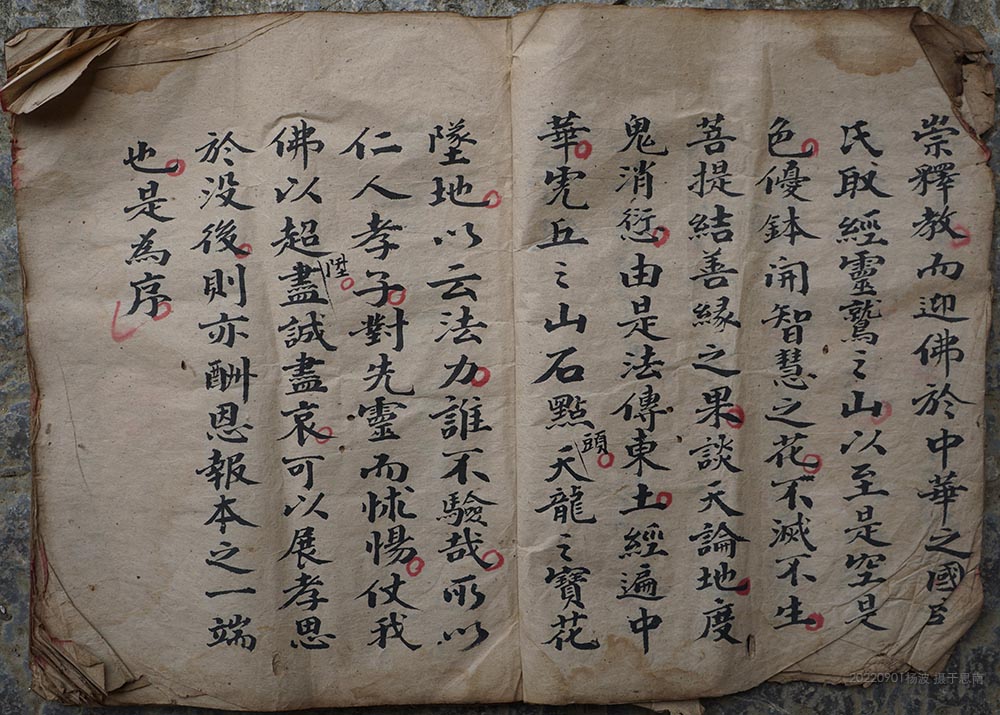 崇釋教而迎佛於中華之國自
氏取經靈鷲之山以至是空是
色優鉢開智慧之花不滅不生
菩提結善緣之果談天論地度
鬼消愆由是法傳東土經遍中
華虎丘之山石點頭天龍之寶花
墜地以云法力誰不驗哉所以
仁人孝子對先靈而怵惕仗我
佛以超陞盡誠盡哀可以展孝思
於没後則亦酬恩報本之一端
也是為序
20220901杨波 摄于思南